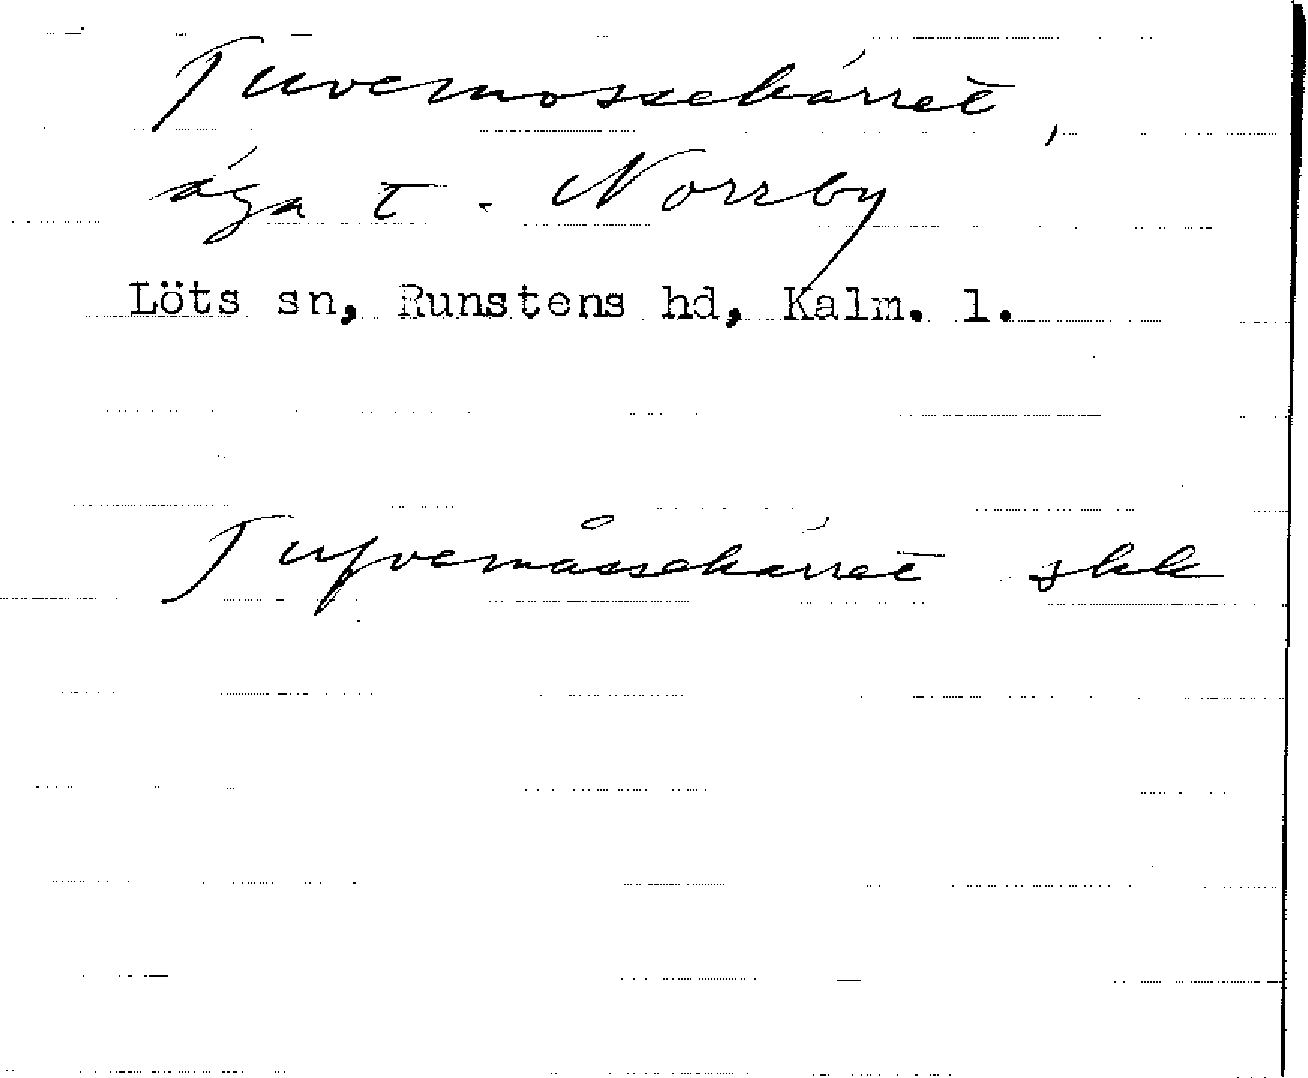 Tuvemossekärret,
äga t. Norrby
Löts sn, Runstens hd, Kalm. l.
Tufvemåssekärret skk